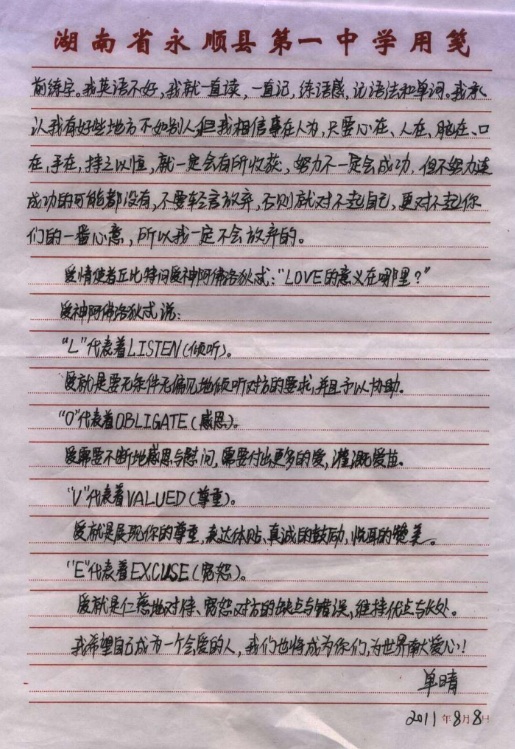 湖南省永顺县第一中学用笺
前练字。我英语不好,我就一直读,一直记,练语感,记语法和单词。我承
认我有好些地方不如别人,但我相信事在人为,只要心在、人在、脑在、口
在,手在,持之以恒,就一定会有所收获,努力不一定会成功,但不努力连
成功的可能都没有,不要轻言放弃,否则就对不起自己,更对不起你
们的一番心意,所以我一定不会放弃的。
爱情使者丘比特问爱神阿佛洛狄忒:"LOVE的意义在哪里?"
爱神阿佛洛狄忒说:
"L"代表着LISTEN(倾听)。
爱就是要无条件无偏见地倾听对方的要求,并且予以协助。
"O"代表着OBLIGATE(感恩)。
爱需要不断地感恩与慰问,需要付出更多的爱,灌溉爱苗。
"V"代表着VALUED(尊重)。
爱就是展现你的尊重,表达体贴、真诚的鼓励,悦耳的赞美。
"E"代表着EXCUSE(宽恕)。
爱就是仁慈地对待、宽恕对方的缺点与错误,维持优点与长处。
我希望自己成为一个会爱的人,我们也将成为你们,为世界献大爱心!
单晴
2011年8月8日